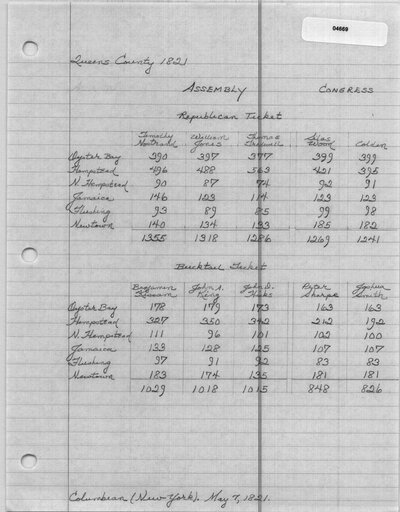 04669
Queens County 1821
ASSEMBLY CONGRESS
Republican Ticket
Timothy William Thomas Silas
Nostrand Jones Tredwell Wood Colden
Oyster Bay 390 397 377 399 399
Hempstead 496 488 503 421 395
N. Hempstead 90 87 74 92 91
Jamaica 146 123 114 123 123
Flushing 93 89 85 99 98
Newtown 140 134 133 185 182
1355 1318 1286 1269 1241
Bucktail Ticket
Benjamin John A. John D. Peter Joshua
Kissam King Hicks Sharpe Smith
Oyster Bay 178 179 173 163 163
Hempstead 327 350 342 212 192
N. Hempstead 111 96 101 102 100
Jamaica 133 128 125 107 107
Flushing 97 91 92 83 83
Newtown 183 174 135 181 181
1029 1018 1015 848 826
Columbian (New York). May 7, 1821.